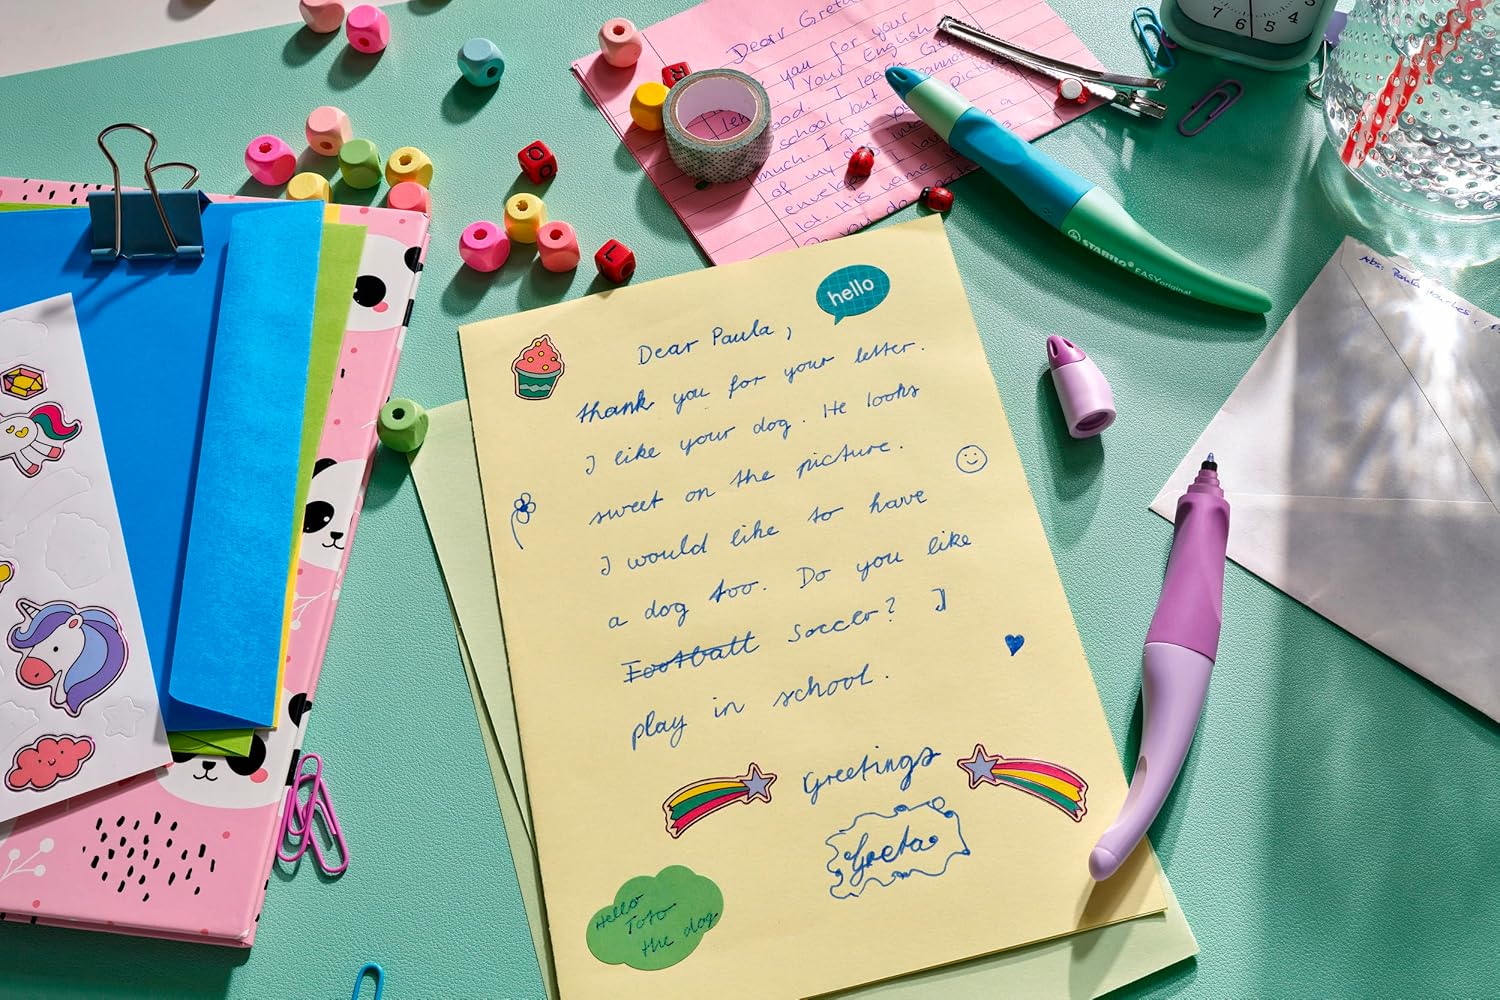 Dear Greta
you for your
Your English
good. I learn Ge
school, but
much. I put
of my do
envelope
lot. His name i
you do
R
O
L
7 6 5 4 3
STABILO® EASYoriginal
Abs: Paula
hello
Dear Paula,
thank you for your letter.
I like your dog. He looks
sweet on the picture.
I would like to have
a dog too. Do you like
Football Soccer? I
play in school.
Greetings
Greta
Hello
Toto
the dog